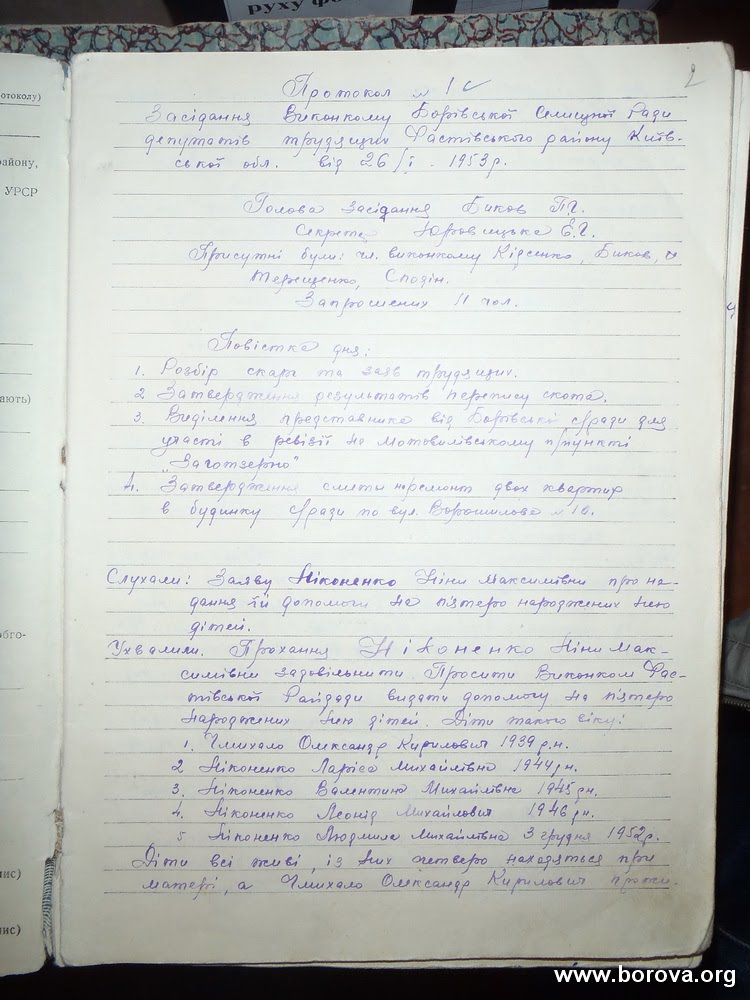 руху
отоколу)
району,
УРСР
ають)
2
Протокол № 1
Засідання Виконкому Борівської Селищної Ради
депутатів трудящих Фастівського району Київ-
ської обл. від 26/I. 1953р.
Голова засідання Биков П.Г.
Секретар Юровицька Є.Г.
Присутні були: чл. виконкому Кідсенко, Биков, и
Терещенко, Сподін.
Запрошених 11 чол.
Повістка дня:
1. Розбір скарг та заяв трудящих.
2 Затвердження результатів перепису скота.
3. Виділення представника від Борівської с/ради для
участі в ревізії на Мотовилівському п/пункті
"Заготзерно"
4. Затвердження смети на ремонт двох квартир
в будинку с/ради по вул. Ворошилова № 10.
Слухали: Заяву Ніконенко Ніни Максимівни про на-
дання їй допомоги на п'ятеро народжених нею
дітей.
Ухвалили. Прохання Ніконенко Ніни Мак-
симівни задовільнити. Просити Виконком Фас-
тівської Райради видати допомогу на п'ятеро
народжених нею дітей. Діти такого віку:
1. Чмихало Олександр Кирилович 1939 р.н.
2 Ніконенко Ларіса Михайлівна 1944 р.н.
3. Ніконенко Валентина Михайлівна 1945 р.н.
4. Ніконенко Леонід Михайлович 1946 р.н.
5 Ніконенко Людмила Михайлівна 3 грудня 1952р.
Діти всі живі, із них четверо находяться при
матері, а Чмихало Олександр Кирилович прожи-
www.borova.org